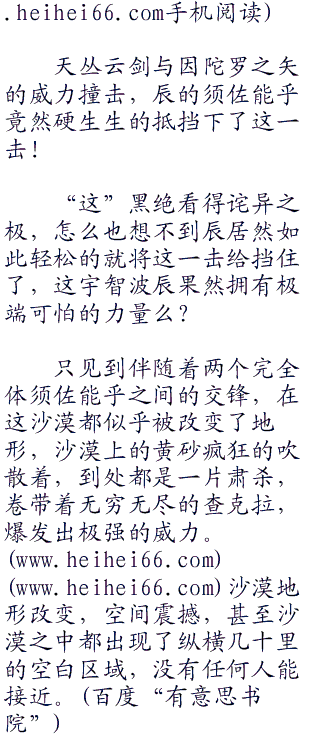 .heihei66.com手机阅读)
天丛云剑与因陀罗之矢
的威力撞击，辰的须佐能乎
竟然硬生生的抵挡下了这一
击！
“这”黑绝看得诧异之
极，怎么也想不到辰居然如
此轻松的就将这一击给挡住
了，这宇智波辰果然拥有极
端可怕的力量么？
只见到伴随着两个完全
体须佐能乎之间的交锋，在
这沙漠都似乎被改变了地
形，沙漠上的黄砂疯狂的吹
散着，到处都是一片肃杀，
卷带着无穷无尽的查克拉，
爆发出极强的威力。
(www.heihei66.com)
(www.heihei66.com)沙漠地
形改变，空间震撼，甚至沙
漠之中都出现了纵横几十里
的空白区域，没有任何人能
接近。(百度“有意思书
院”)